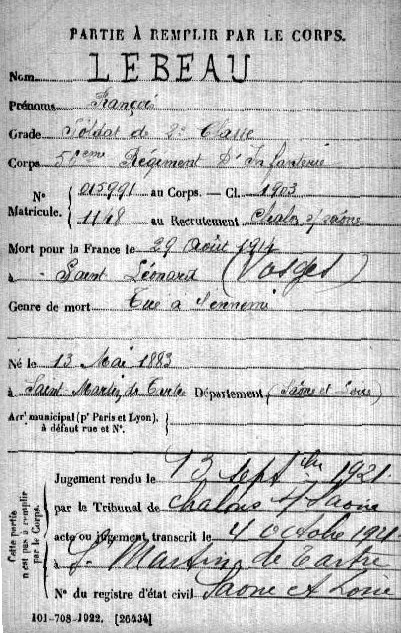 PARTIE À REMPLIR PAR LE CORPS.
Nom LEBEAU
Prénoms François
Grade Soldat de 2e Classe
Corps 56eme Régiment D'Infanterie
N° Matricule. { 015991 au Corps. — Cl. 1903
1148 au Recrutement Chalon s/ saône
Mort pour la France le 29 Août 1914
à Saint Léonard (Vosges)
Genre de mort Tué à l'ennemi
Né le 13 Mai 1883
à Saint Martin de Tartre Département (Saône et Loire)
Arrt municipal (pr Paris et Lyon), à défaut rue et N°.
Cette partie n'est pas à remplir par le Corps.
Jugement rendu le 13 septbre 1921.
par le Tribunal de Chalons s/ Saône
acte ou jugement transcrit le 4 octobre 1921.
à St Martin de Tartre
N° du registre d'état civil Saone et Loire
101-708-1922. [26434]